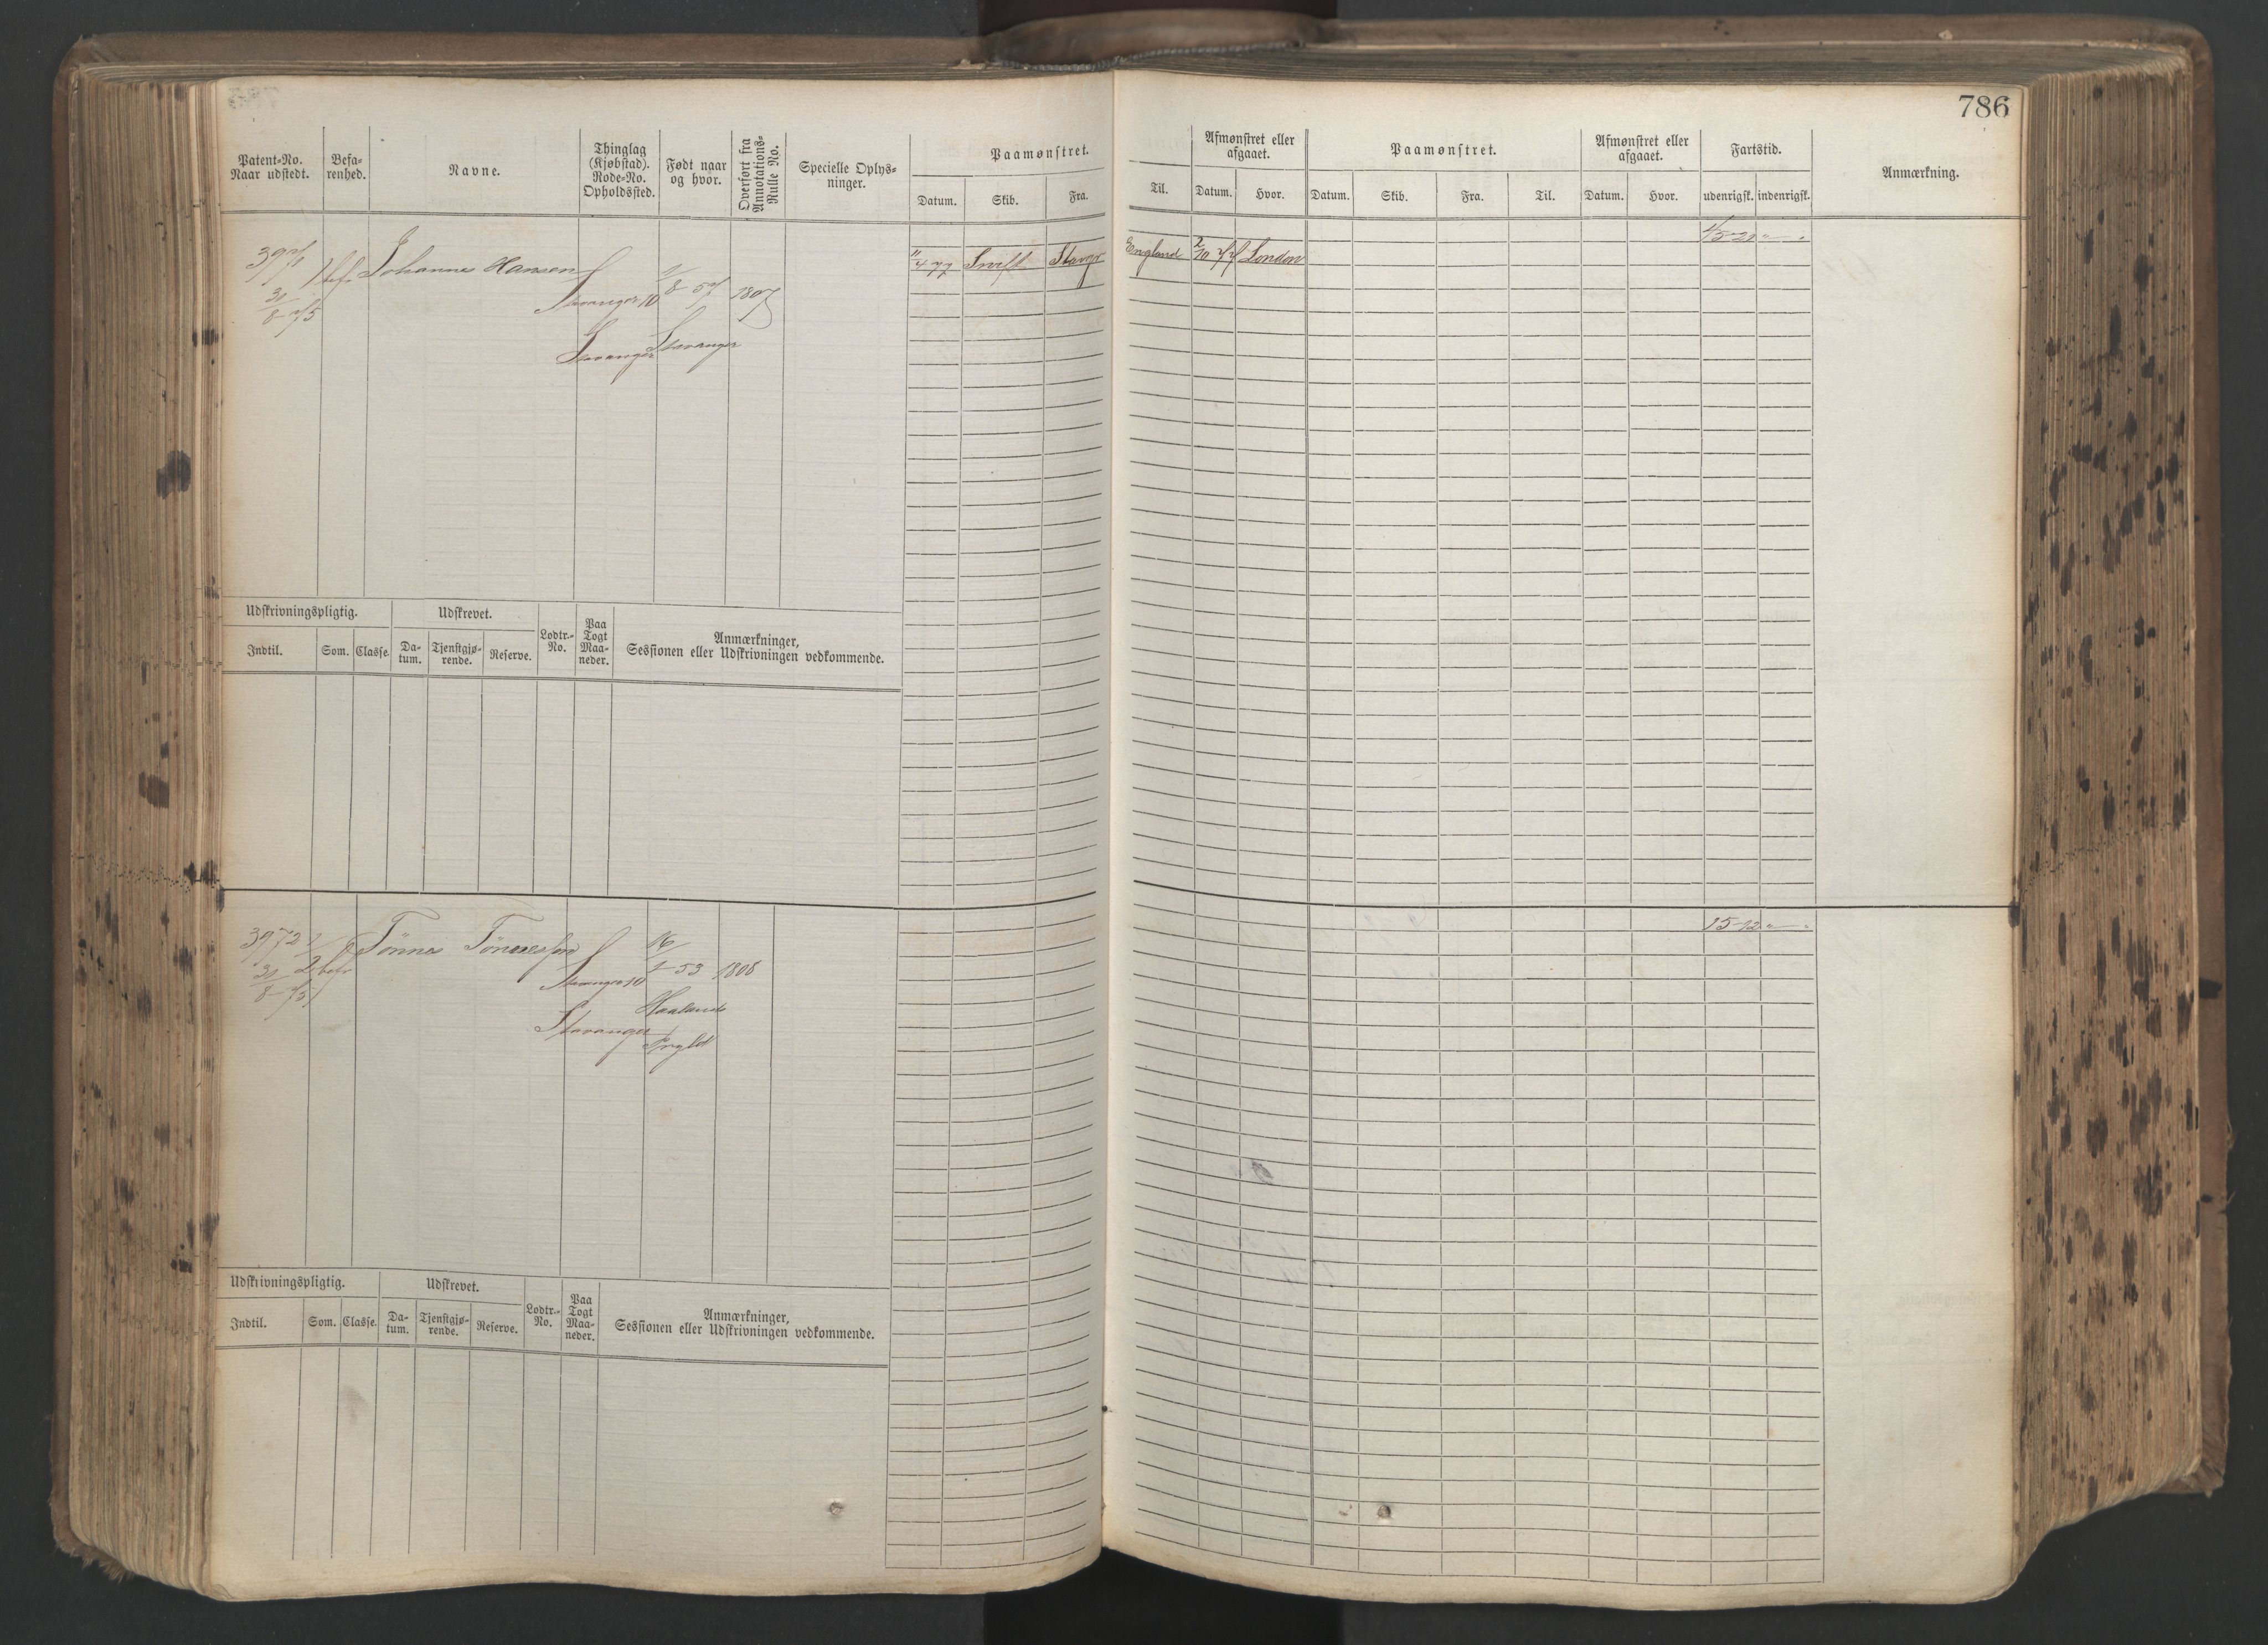 786
Patent-No.
Naar udstedt.
Befa-
renhed.
Navne.
Thinglag
(Kjøbstad).
Rode-No.
Opholdssted.
Født naar
og hvor.
Overført fra
Annotations-
Rulle No.
Specielle Oplys-
ninger.
Paamønstret.
Datum. Skib. Fra. Til.
Afmønstret eller
afgaaet.
Datum. Hvor.
Paamønstret.
Datum. Skib. Fra. Til.
Afmønstret eller
afgaaet.
Datum. Hvor.
Fartstid.
udenrigsk. indenrigsk.
Anmærkning.
3971
31/8 75
bef.
Johannes Hansen
Stavanger 10
Stavanger
8 57
Stavanger
1807
4 77 Swift Stavgr England 2/10 77 London
Udskrivningspligtig.
Indtil. Som. Classe.
Udskrevet.
Da-
tum.
Tjenstgjø-
rende.
Reserve.
Lodtr.-
No.
Paa
Togt
Maa-
neder.
Anmærkninger,
Sessionen eller Udskrivningen vedkommende.
3972
31/8 75
Tönnes Tönnessen
Stavanger 10
Stavanger
16/
53
Haaland
1808
15-12
Udskrivningspligtig.
Indtil. Som. Classe.
Udskrevet.
Da-
tum.
Tjenstgjø-
rende.
Reserve.
Lodtr.-
No.
Paa
Togt
Maa-
neder.
Anmærkninger,
Sessionen eller Udskrivningen vedkommende.